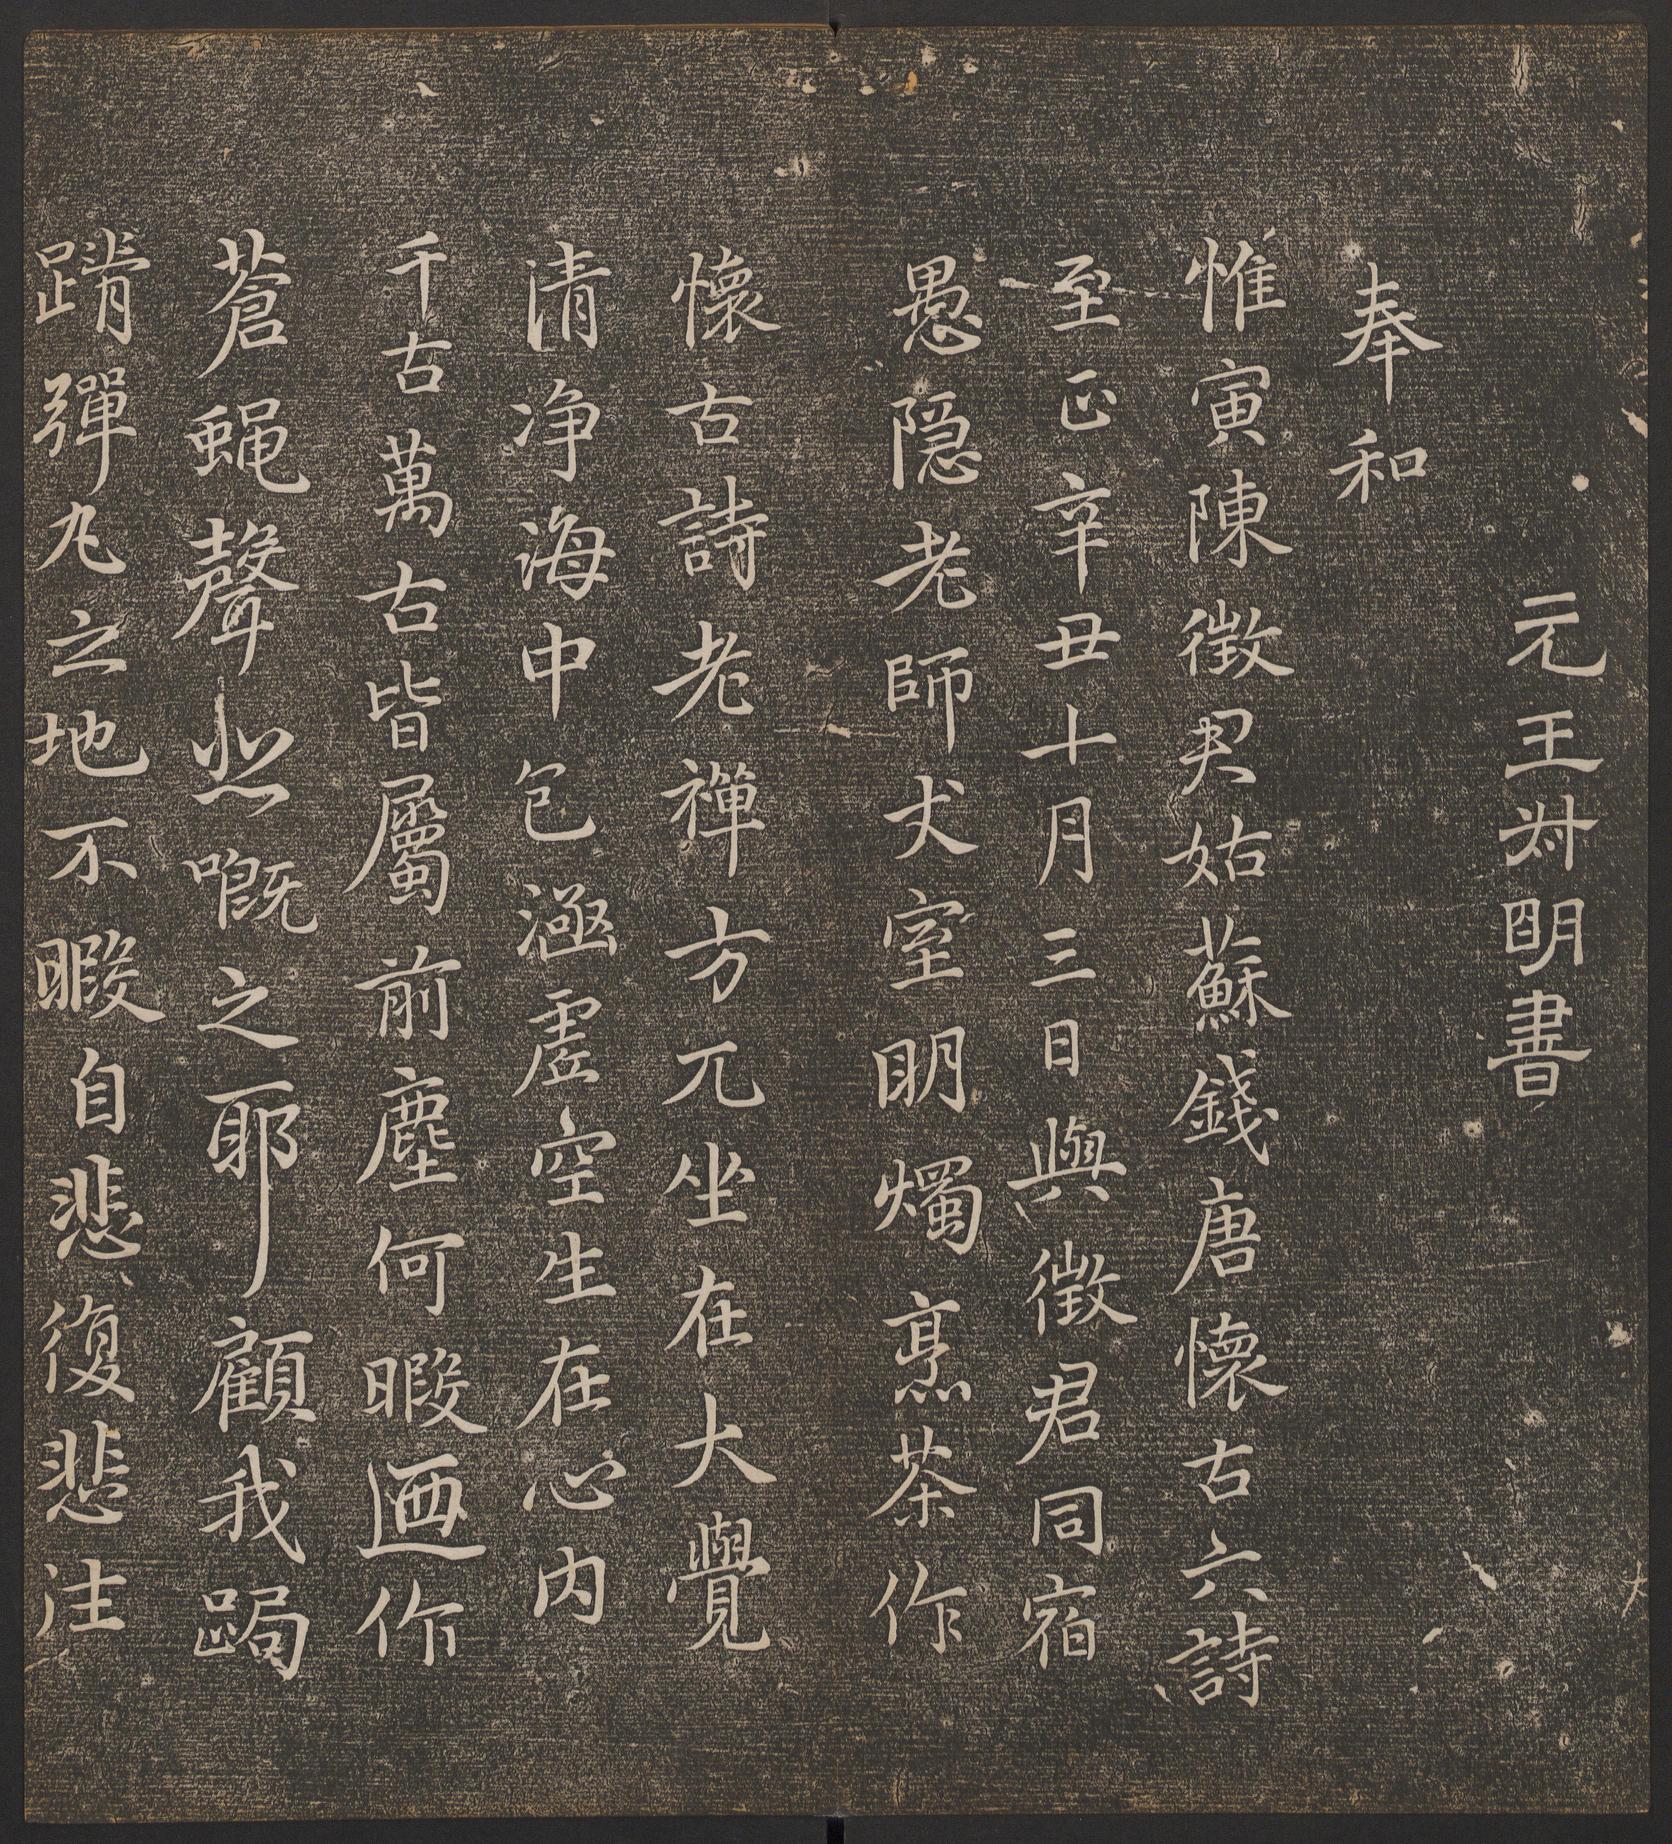 元王叔明書
奉和
惟寅陳徵君姑蘇錢唐懷古六詩
至正辛丑十月三日與徵君同宿
愚隠老師丈室明燭烹茶作
懷古詩老禪方兀坐在大覺
清净海中包涵虛空生在心内
千古萬古皆屬前塵何暇迺作
蒼蝇聲嘅之耶顧我跼
蹐彈丸之地不暇自悲復悲往